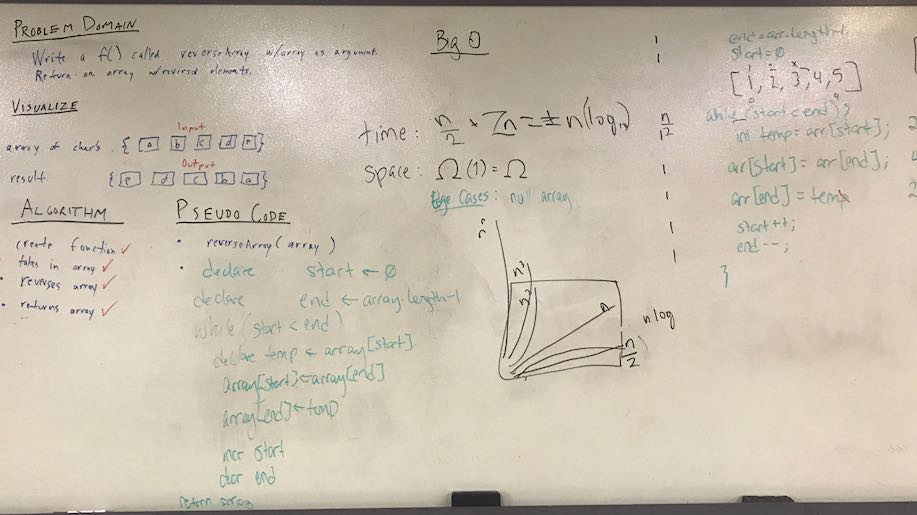 PROBLEM DOMAIN
Write a f() called reverseArray w/array as argument.
Return an array w/reversd elements.
VISUALIZE
Input
array of chars { [a] [b] [c] [d] [e] }
Output
result { [e] [d] [c] [b] [a] }
ALGORITHM
create function ✓
takes in array ✓
• reverses array ✓
• returns array ✓
PSEUDO CODE
• reverseArray(array)
• declare start ← 0
declare end ← array.length-1
while (start < end)
declare temp ← array[start]
array[start] ← array[end]
array[end] ← temp
incr start
decr end
return array
Big O
time: n/2 *
space: Ω(1) = Ω
Edge Cases: null array
n
n log
n/2
1
1
n/2
1
1
1
1
end = arr.length-1
start = 0
[1, 2, 3, 4, 5]
while (start < end) {
int temp = arr[start];
arr[start] = arr[end];
arr[end] = temp
start++;
end--;
}